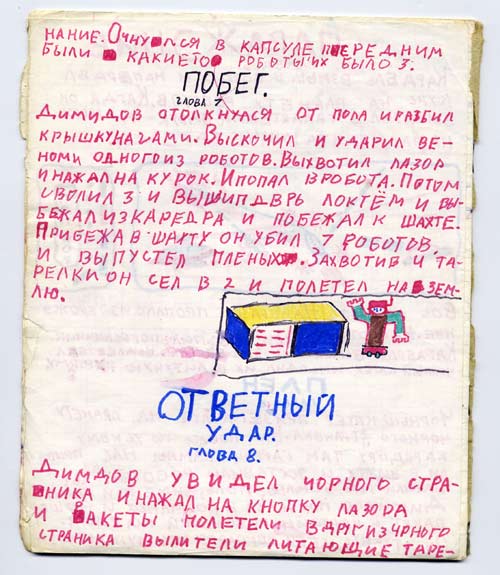 НАНИЕ. ОЧНУЛСЯ В КАПСУЛЕ ПЕРЕДНИМ
БЫЛИ КАКИЕТО РОБОТЫ ИХ БЫЛО 3.
ПОБЕГ.
ГЛОВА 7
ДИМИДОВ ОТОЛКНУЛСЯ ОТ ПОЛА И РАЗБИЛ
КРЫШКУ НАГАМИ. ВЫСКОЧИЛ И УДАРИЛ ВЕ-
НОМИ ОДНОГО ИЗ РОБОТОВ. ВЫХВОТИЛ ЛАЗОР
И НАЖАЛ НА КУРОК. И ПОПАЛ В РОБОТА. ПОТОМ
СВОЛИЛ 3 И ВЫШИП ДВРЬ ЛОКТЁМ И ВЫ-
БЕЖАЛ ИЗ КАРЕДРА И ПОБЕЖАЛ К ШАХТЕ.
ПРИБЕЖАВ ШАХТУ ОН УБИЛ 7 РОБОТОВ.
И ВЫПУСТЕЛ ПЛЕНЫХ. ЗАХВОТИВ 4 ТА-
РЕЛКИ ОН СЕЛ В 2 И ПОЛЕТЕЛ НА ЗЕМ-
ЛЮ.
ОТВЕТНЫЙ
УДАР.
ГЛОВА 8.
ДИМДОВ УВИДЕЛ ЧОРНОГО СТРА-
НИКА И НАЖАЛ НА КНОПКУ ЛАЗОРА
И РАКЕТЫ ПОЛЕТЕЛИ ВДРГ ИЗ ЧРНОГО
СТРАНИКА ВЫЛИТЕЛИ ЛИТАЮЩИЕ ТАРЕ-